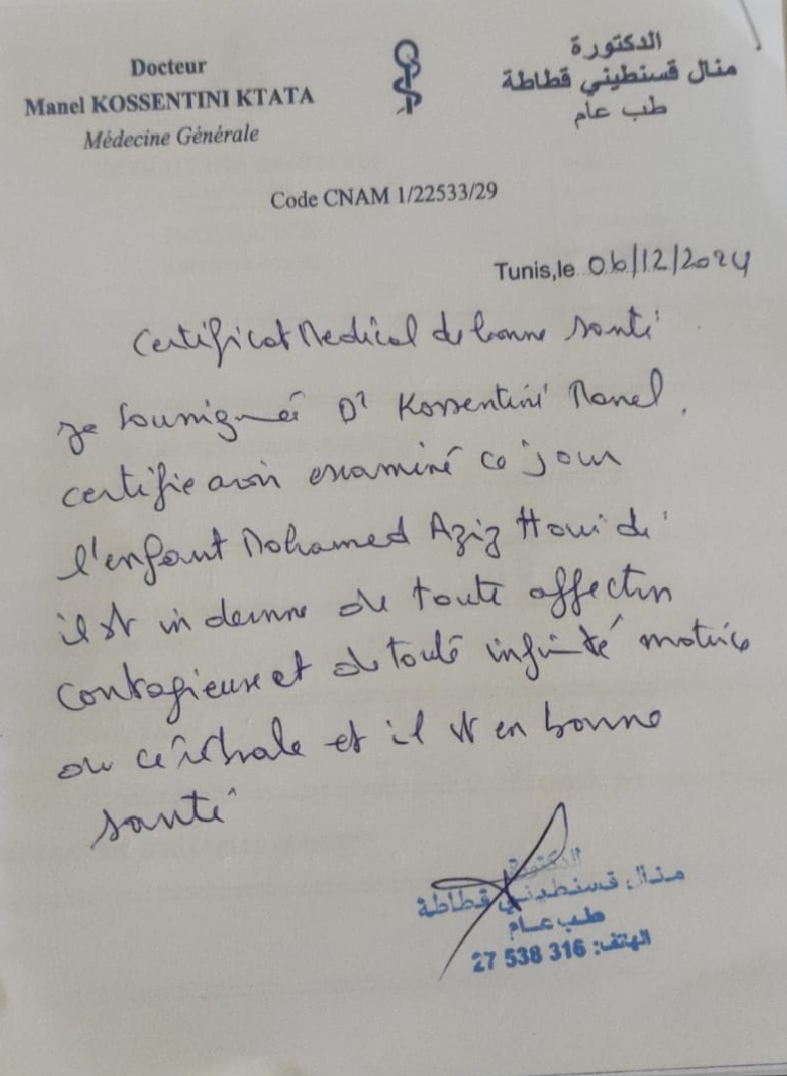 Docteur
Manel KOSSENTINI KTATA
Médecine Générale
الدكتورة
منال قسنطيني قطاطة
طب عام
Code CNAM 1/22533/29
Tunis,le 06/12/2024
Certificat Medical de bonne santé
Je soussignée Dr Kossentini Manel,
certifie avoir examiné ce jour
l'enfant Mohamed Aziz Houidi
il est indemne de toute affection
contagieuse et de toute infirmité motrice
ou cérébrale et il est en bonne
santé
الدكتورة
منال قسنطيني قطاطة
طب عام
الهتف: 27 538 316